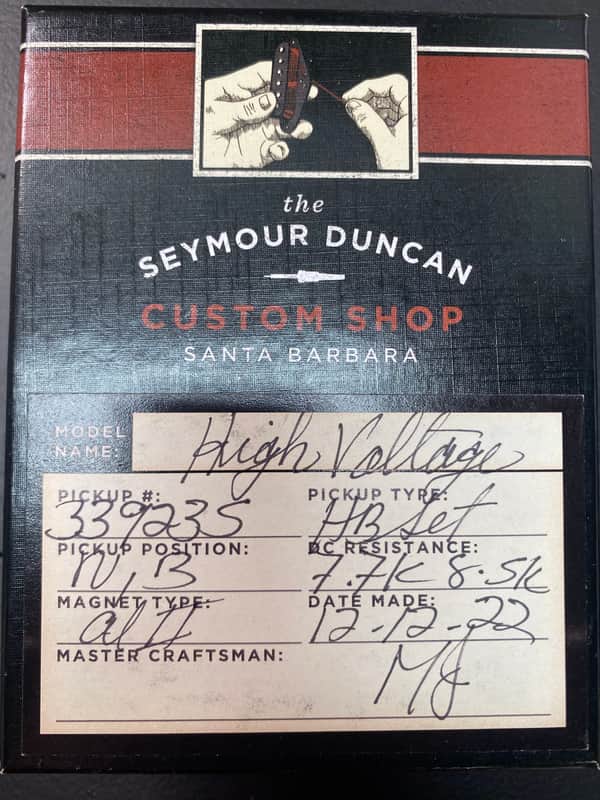 the
SEYMOUR DUNCAN
CUSTOM SHOP
SANTA BARBARA
MODEL NAME: High Voltage
PICKUP #: PICKUP TYPE:
339235 HB Set
PICKUP POSITION: DC RESISTANCE:
N, B 7.7K 8.5K
MAGNET TYPE: DATE MADE:
Al II 12-12-22
MASTER CRAFTSMAN:
MJ